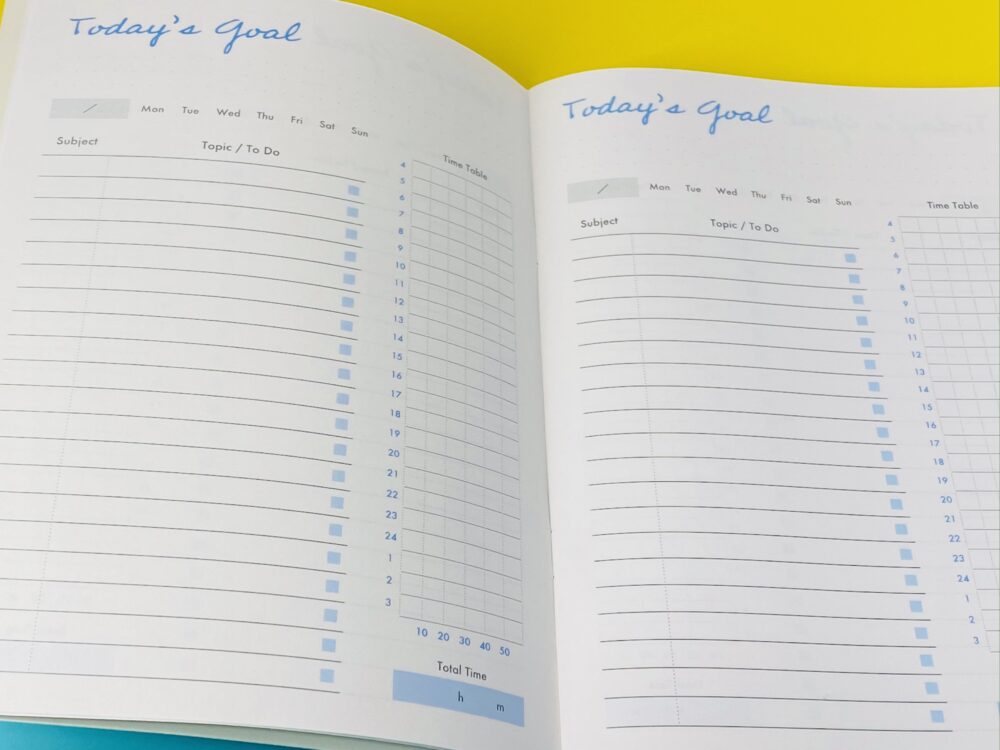 Today's Goal
/ Mon Tue Wed Thu Fri Sat Sun
Subject Topic / To Do
Time Table
4
5
6
7
8
9
10
11
12
13
14
15
16
17
18
19
20
21
22
23
24
1
2
3
10 20 30 40 50
Total Time
h m
Today's Goal
/ Mon Tue Wed Thu Fri Sat Sun
Subject Topic / To Do
Time Table
4
5
6
7
8
9
10
11
12
13
14
15
16
17
18
19
20
21
22
23
24
1
2
3